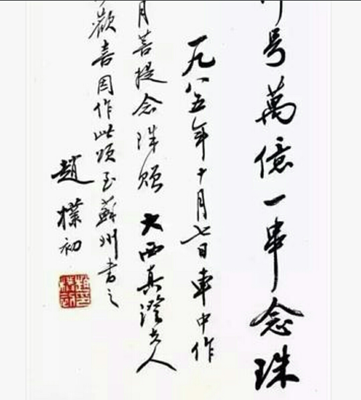 号萬億一串念珠
一九八五年十月七日車中作
月菩提念珠 大西真澄夫人
歡喜因作此頌至蘇州書之
趙樸初